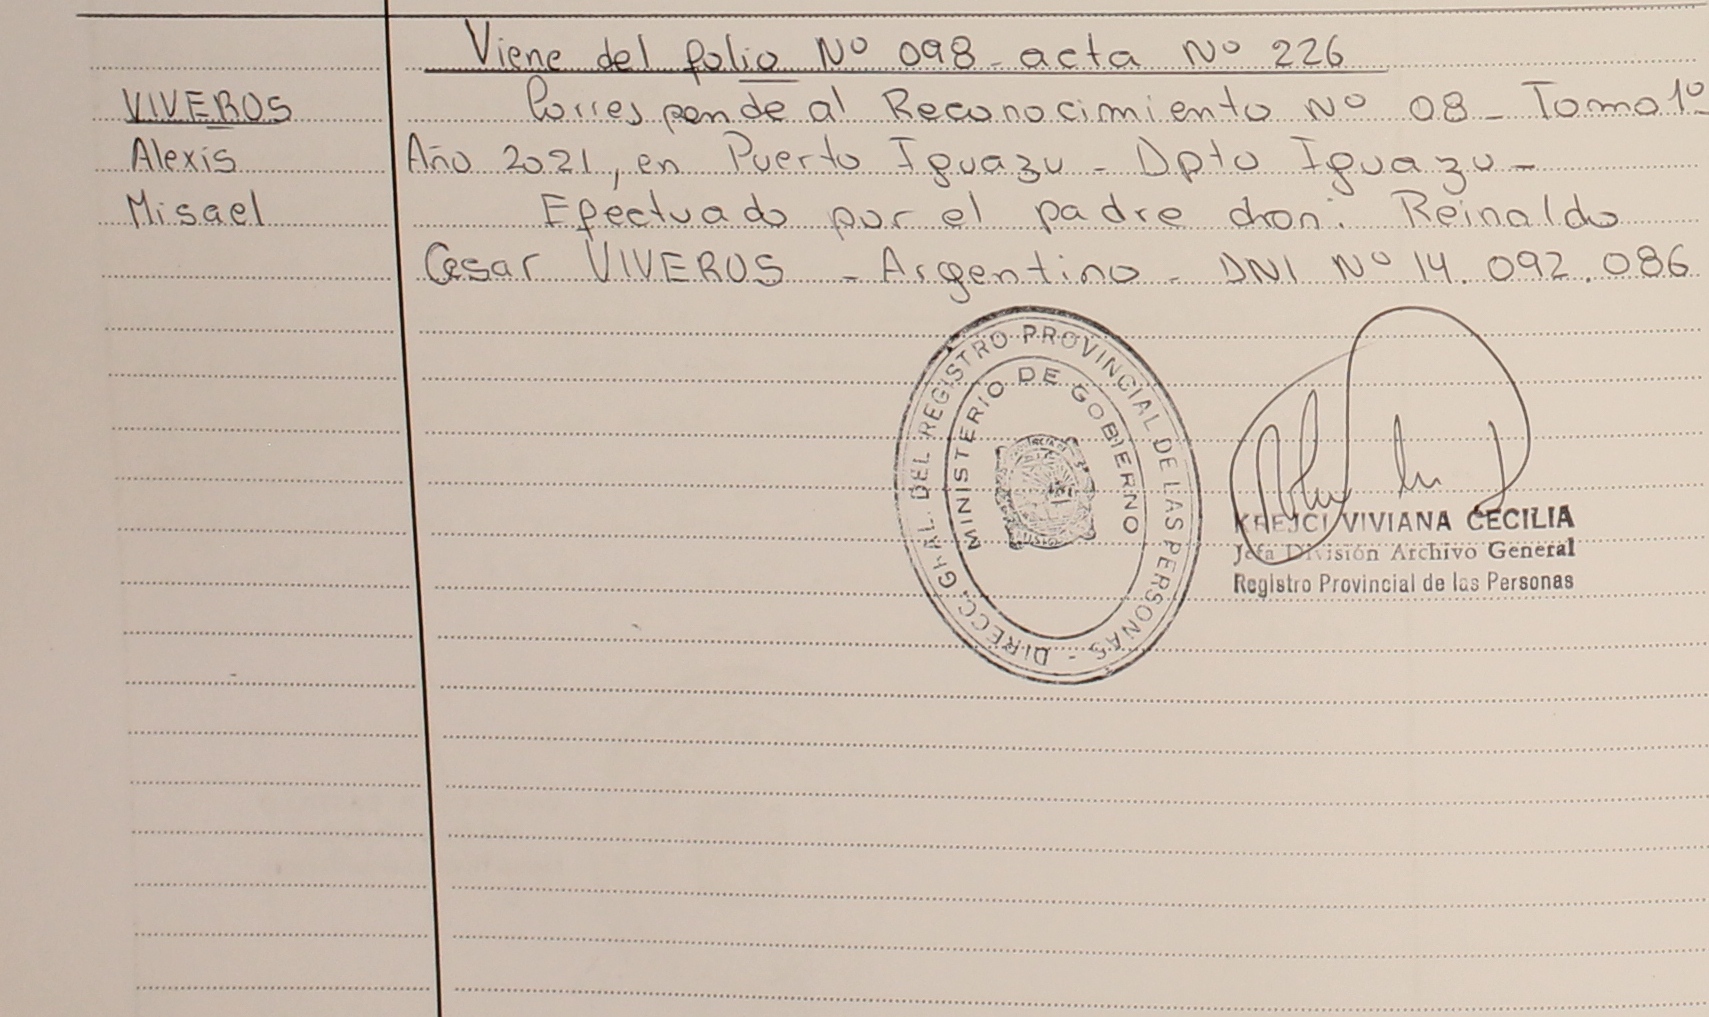 Viene del folio Nº 098 - acta Nº 226
VIVEROS
Corresponde al Reconocimiento Nº 08 - Tomo 1º
Alexis
Año 2021, en Puerto Iguazu - Dpto Iguazu -
Misael
Efectuado por el padre don: Reinaldo
Cesar VIVEROS - Argentino - DNI Nº 14.092.086
DIRECC. GRAL. DEL REGISTRO PROVINCIAL DE LAS PERSONAS -
MINISTERIO DE GOBIERNO
KREJCI VIVIANA CECILIA
Jefa División Archivo General
Registro Provincial de las Personas